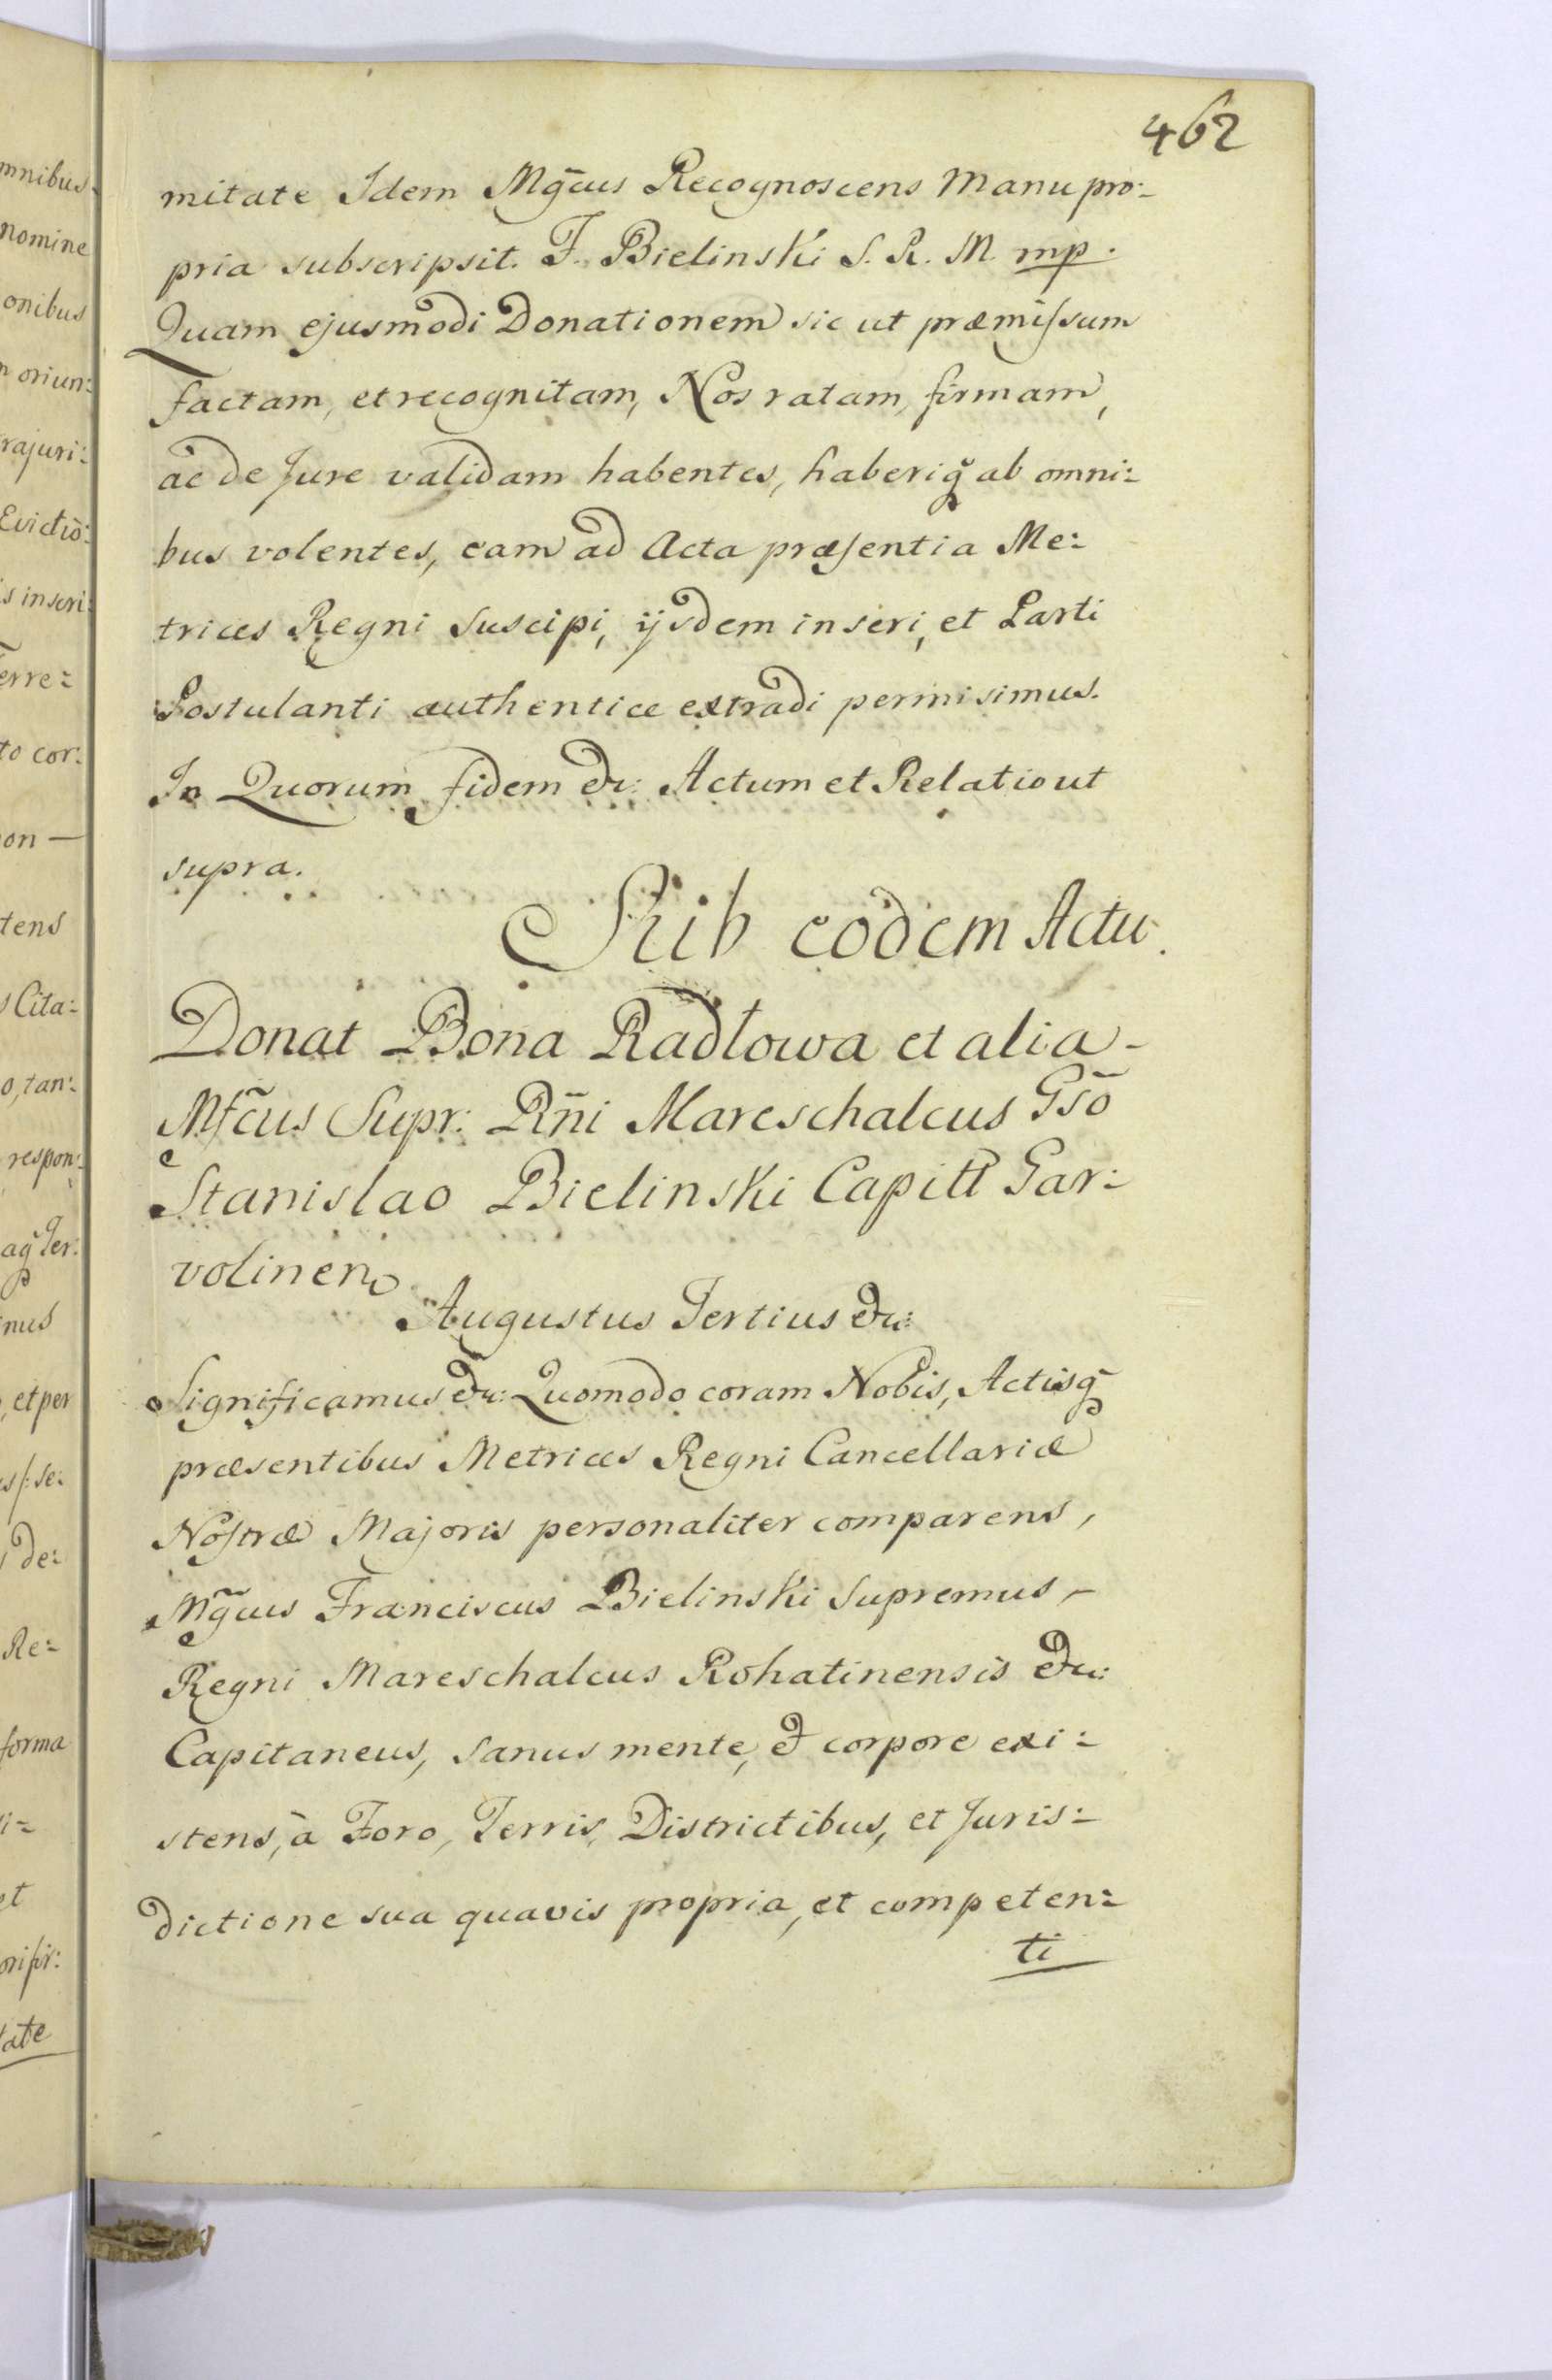 462
mitate Idem Mg̃cus Recognoscens Manu pro:
pria subscripsit. F. Bielinski S. R. M. mp.
Quam ejusmodi Donationem sic ut præmissum
factam, et recognitam, Nos ratam, firmam,
ac de Jure validam habentes, haberiq̃ ab omni:
bus volentes, eam ad Acta præsentia Me:
trices Regni suscipi, ijsdem inseri, et Parti
Postulanti authentice extradi permisimus.
In Quorum fidem &c: Actum et Relatio ut
supra.
Sub eodem Actu.
Donat Bona Radłowa et alia -
Mfc̃us Supr: Rñi Mareschalcus Gsõ
Stanislao Bielinski Capitt Gar:
volinen
Augustus Tertius &c:
Significamus &c: Quomodo coram Nobis, Actisq̃
præsentibus Metrices Regni Cancellariæ
Nostræ Majoris personaliter comparens,
Mg̃cus Franciscus Bielinski Supremus -
Regni Mareschalcus Rohatinensis &c:
Capitaneus, sanus mente, & corpore exi:
stens, à Foro, Terris, Districtibus, et Juris:
dictione sua quavis propria, et competen:
ti
mnibus
nomine
onibus
n oriun:
rajuri:
Evictiõ:
is inseri:
Terre:
to cor:
on —
tens
s Cita:
o, tan:
respon:
aq̃ Ter:
mus
, et per
s/: se:
de:
Re:
forma
i:
et
tate